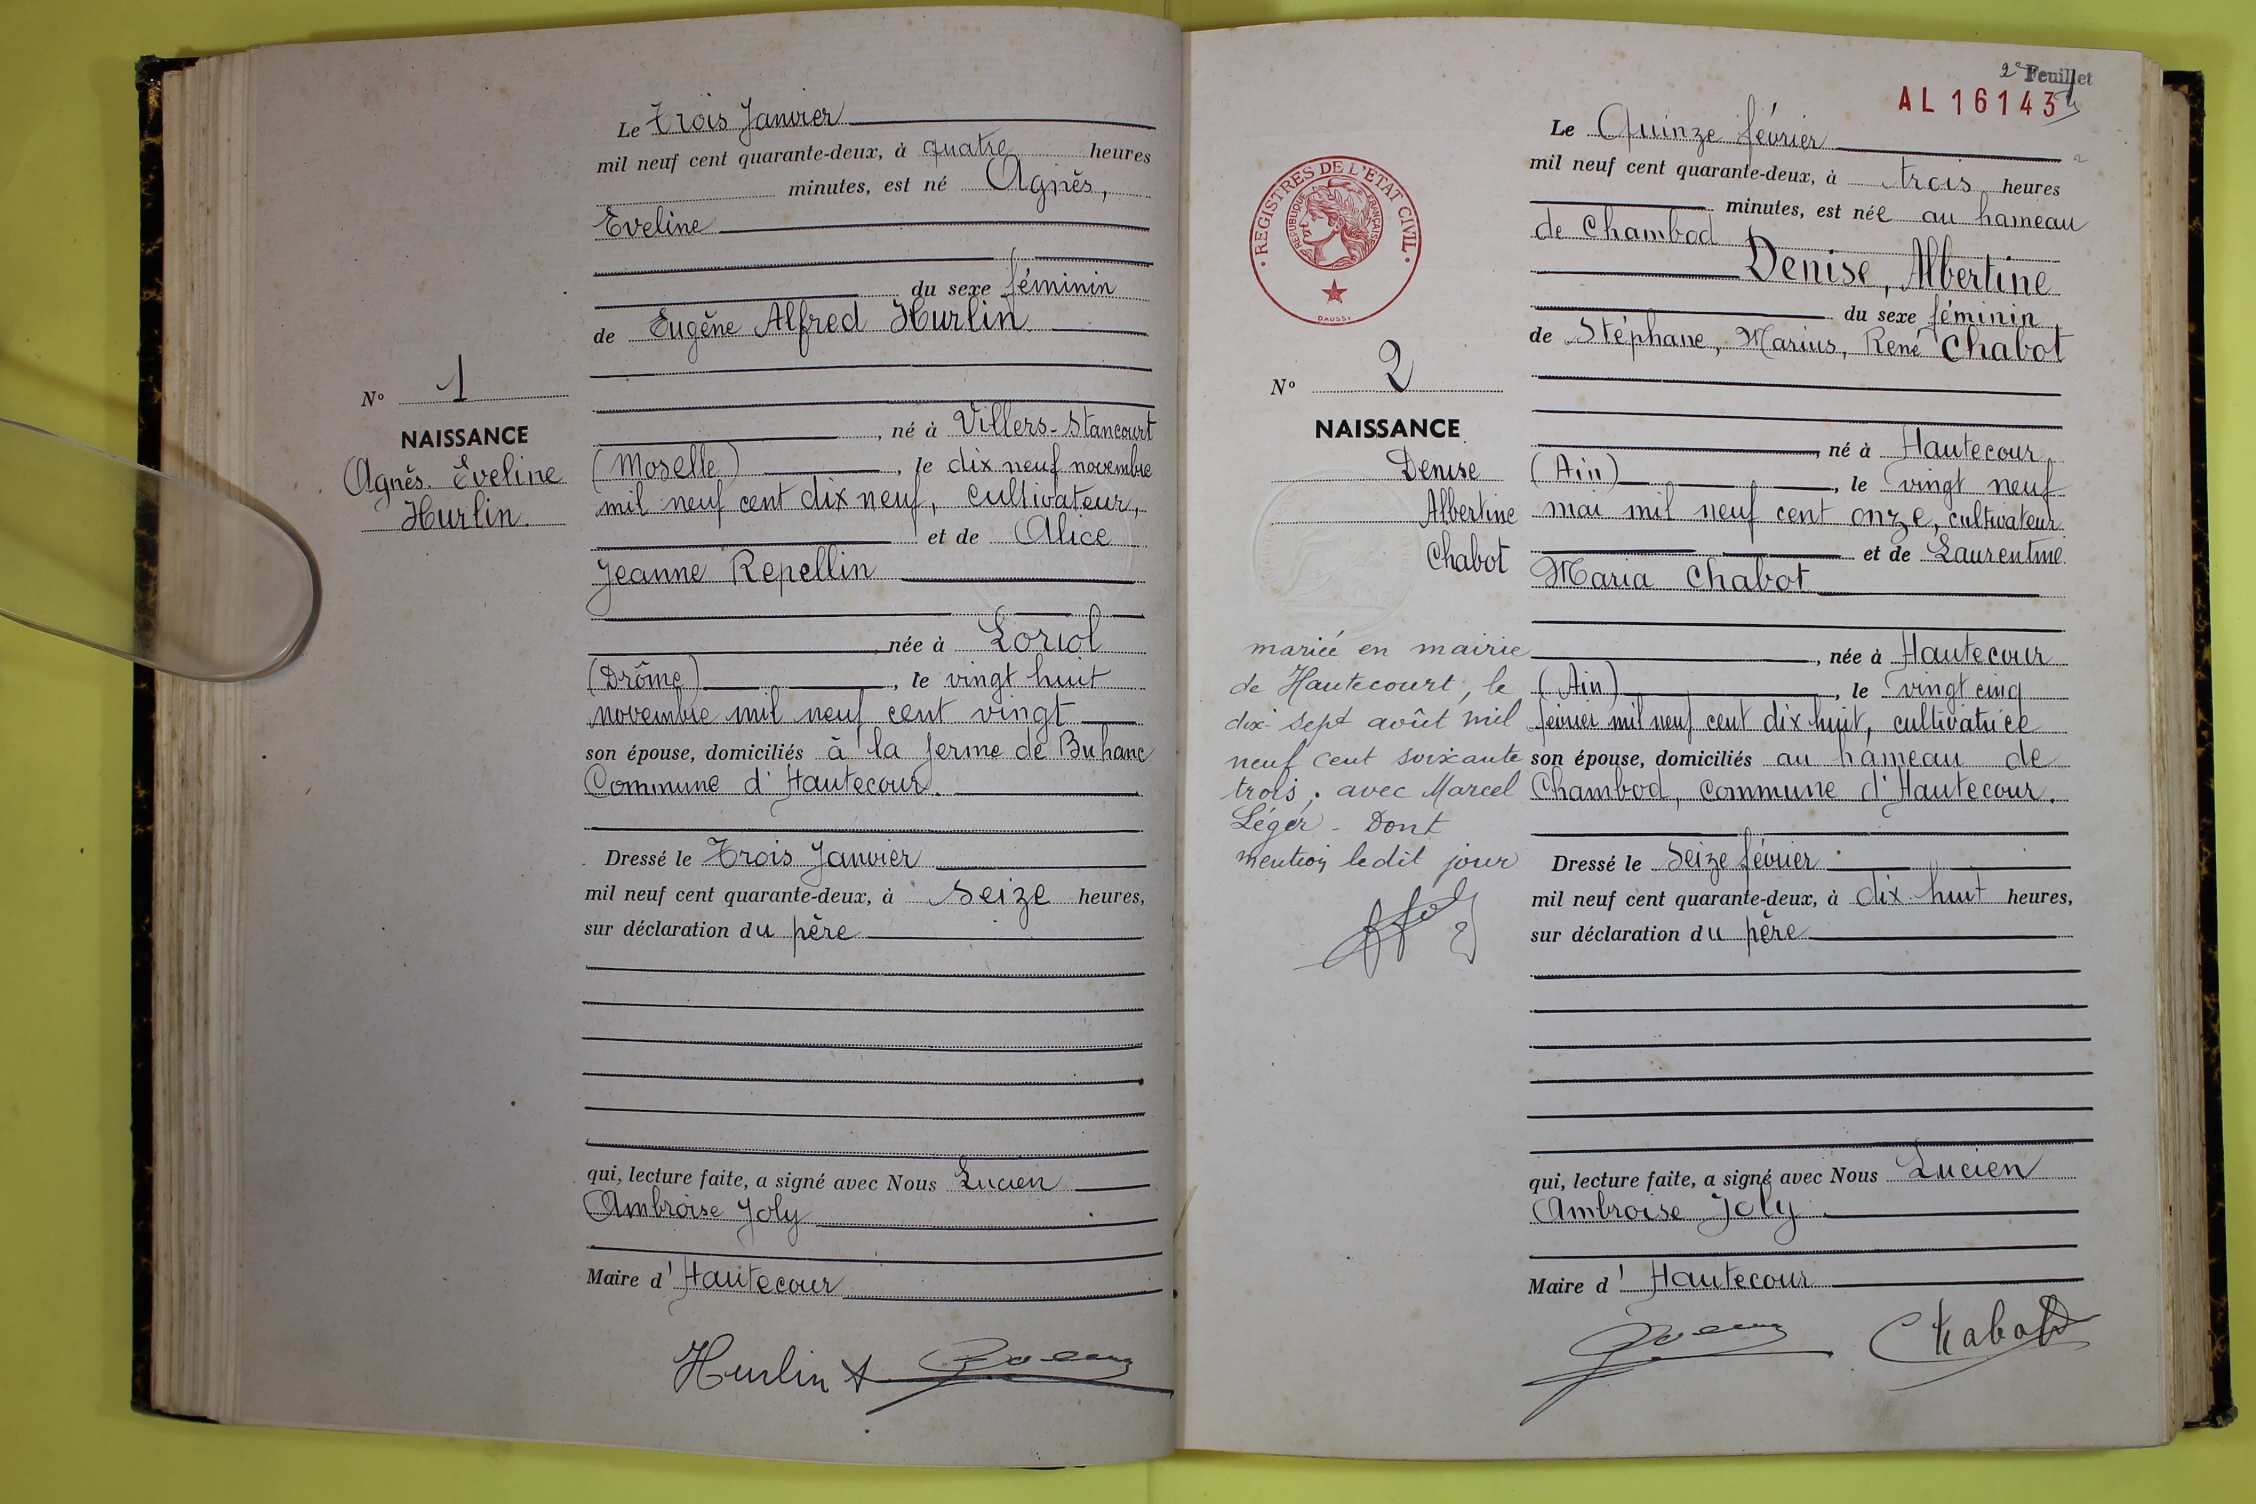 Le Trois Janvier
mil neuf cent quarante-deux, à quatre heures
minutes, est né Agnès,
Eveline
du sexe féminin
de Eugène Alfred Hurlin
N° 1
NAISSANCE
Agnès Eveline
Hurlin
, né à Villers-Stancourt
(Moselle), le dix neuf novembre
mil neuf cent dix neuf, cultivateur,
et de Alice
Jeanne Repellin
née à Loriol
(Drôme), le vingt huit
novembre mil neuf cent vingt
son épouse, domiciliés à la ferme de Buhanc
Commune d'Hautecour.
Dressé le Trois Janvier
mil neuf cent quarante-deux, à seize heures,
sur déclaration du père
qui, lecture faite, a signé avec Nous Lucien
Ambroise Joly
Maire d'Hautecour
Hurlin A
2e Feuillet
AL 16143
Le Quinze février
mil neuf cent quarante-deux, à trois heures
minutes, est née au hameau
de Chambod
Denise, Albertine
du sexe féminin
de Stéphane, Marius, René Chabot
REGISTRES DE L'ETAT CIVIL
REPUBLIQUE FRANÇAISE
DAUSSY
N° 2
NAISSANCE
Denise
Albertine
Chabot
, né à Hautecour
(Ain), le vingt neuf
mai mil neuf cent onze, cultivateur
et de Laurentine
Maria Chabot
, née à Hautecour
(Ain), le vingt cinq
février mil neuf cent dix huit, cultivatrice
son épouse, domiciliés au hameau de
Chambod, commune d'Hautecour.
mariée en mairie
de Hautecourt, le
dix-sept août mil
neuf cent soixante
trois, avec Marcel
Léger - Dont
mention ledit jour
Dressé le Seize février
mil neuf cent quarante-deux, à dix huit heures,
sur déclaration du père
qui, lecture faite, a signé avec Nous Lucien
Ambroise Joly
Maire d'Hautecour
Chabot